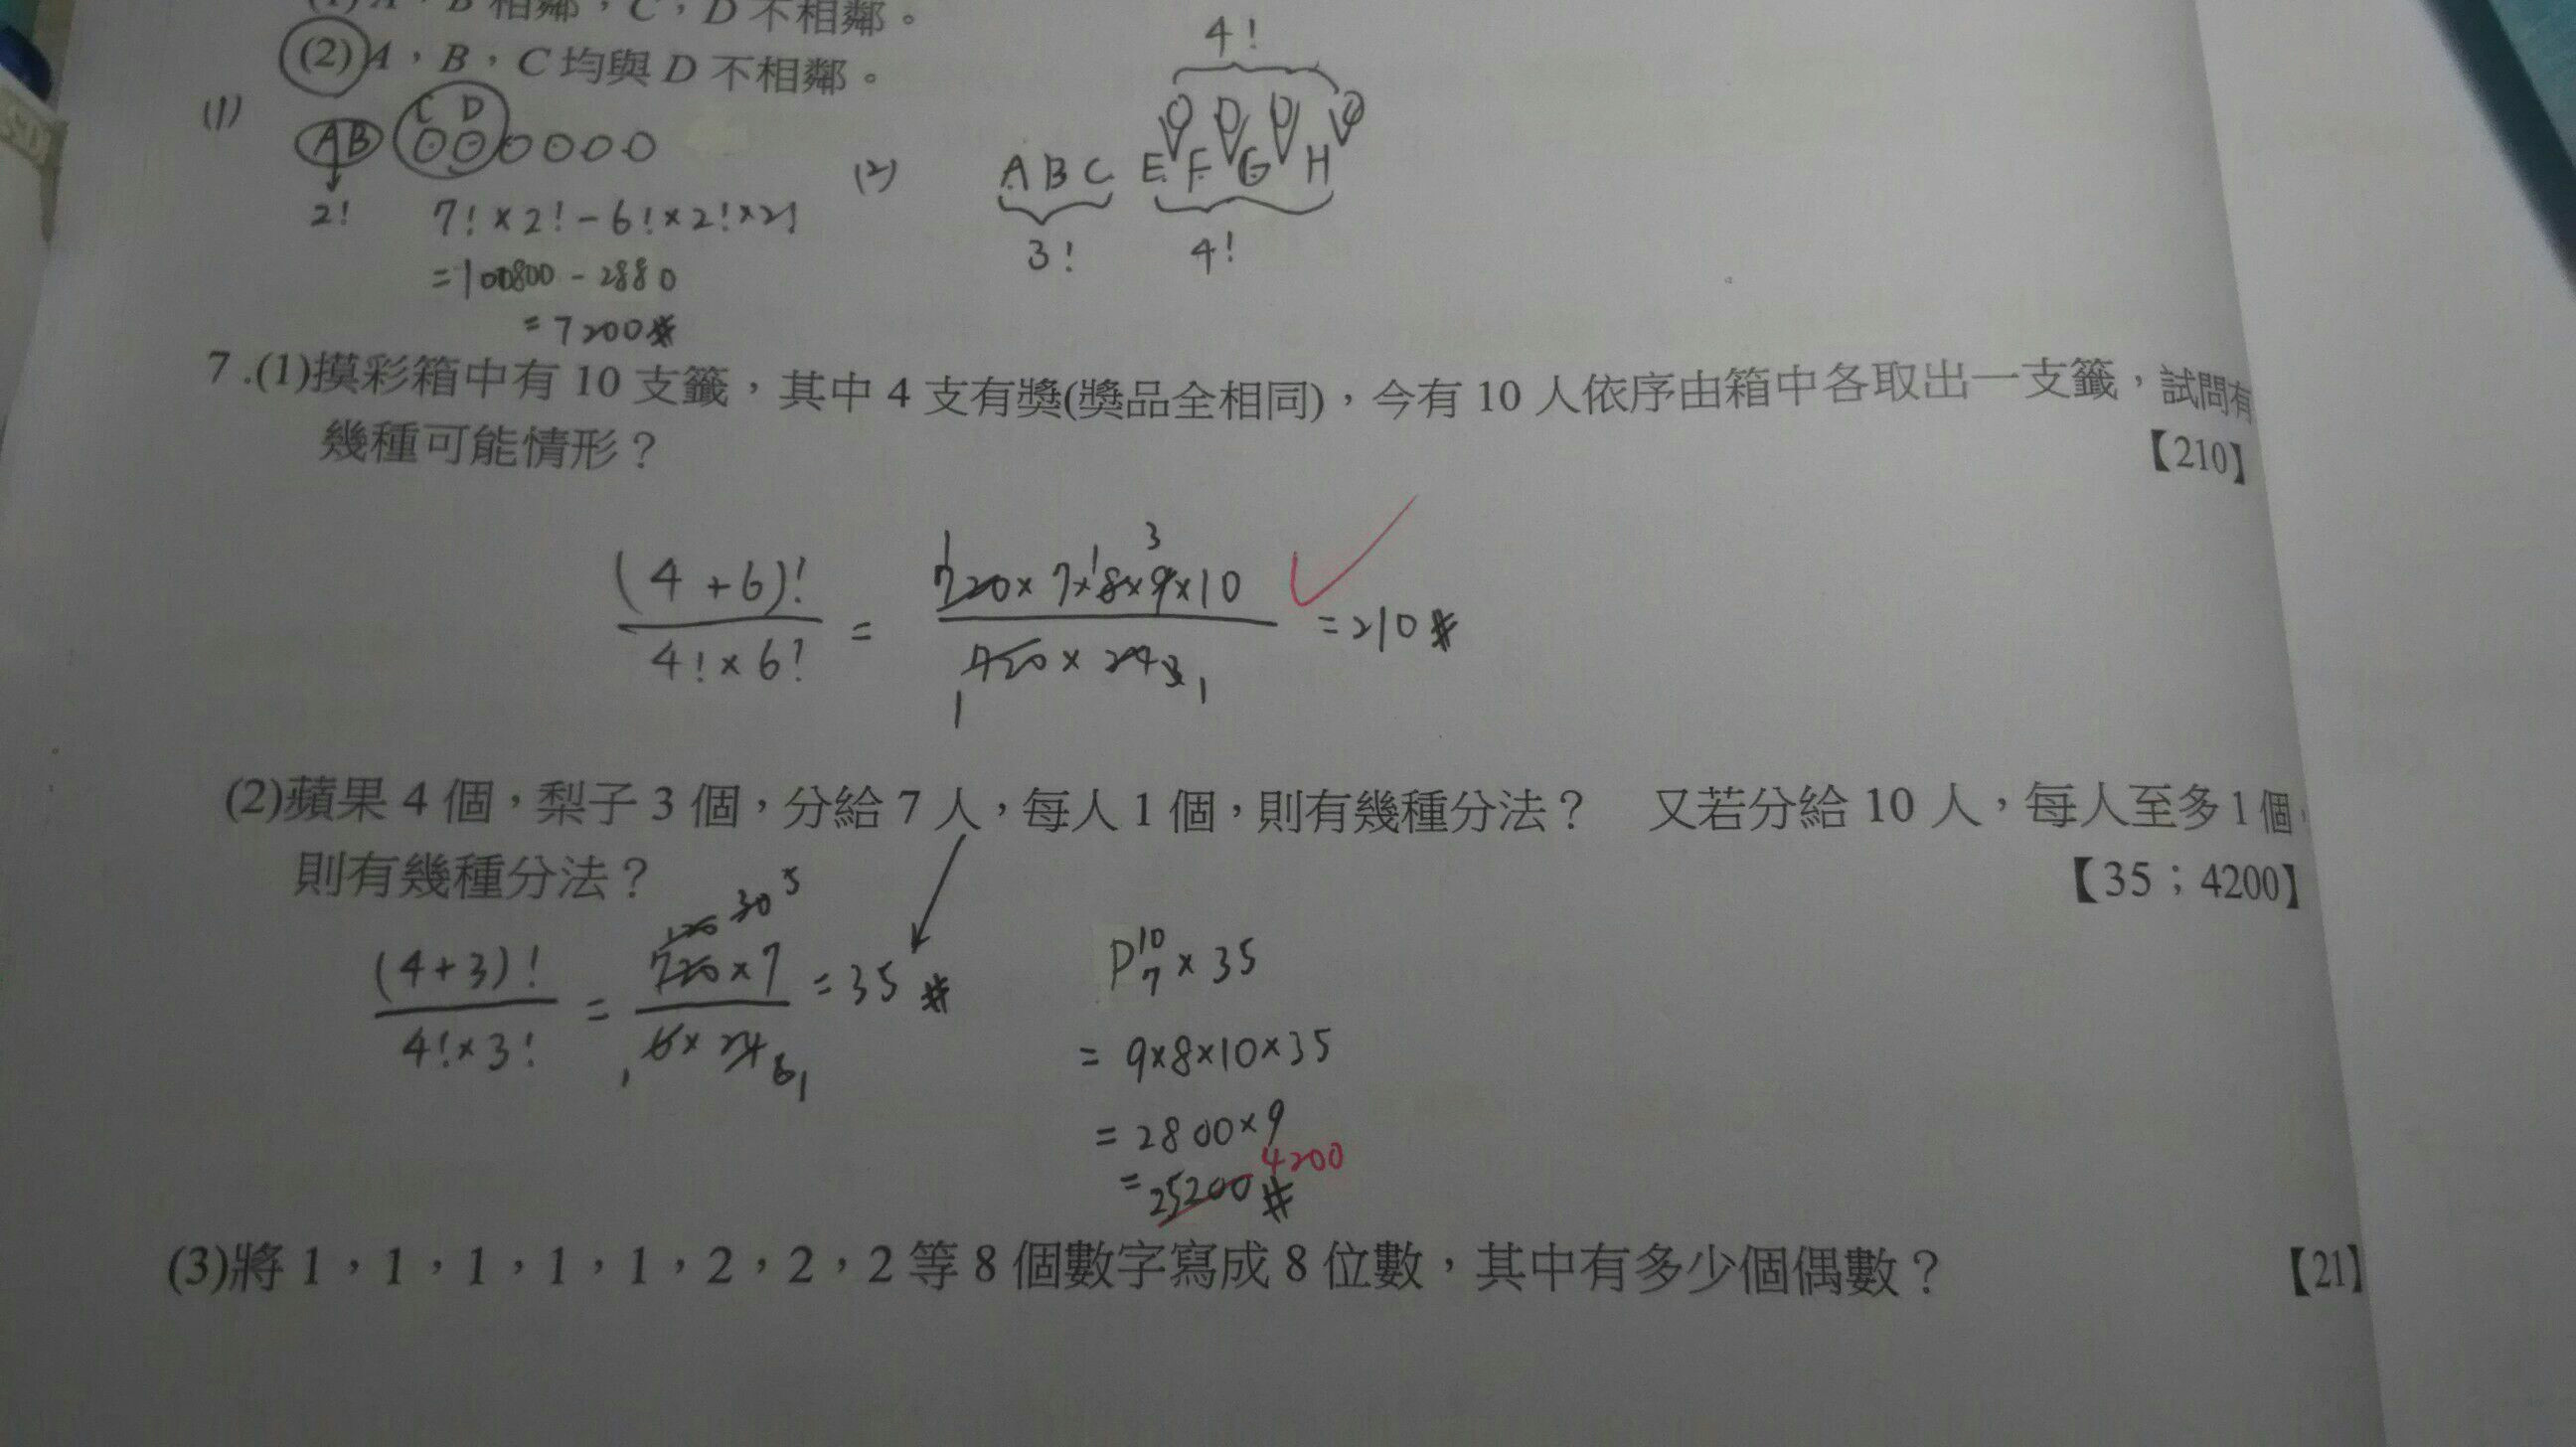 (1) A，B 相鄰，C，D 不相鄰。
(2) A，B，C 均與 D 不相鄰。
(1)
C D
AB
2!
7! × 2! - 6! × 2! × 2!
= 100800 - 2880
= 7200 #
(2)
4!
A B C E F G H
3! 4!
7.(1)摸彩箱中有 10 支籤，其中 4 支有獎(獎品全相同)，今有 10 人依序由箱中各取出一支籤，試問有
幾種可能情形？ 【210】
(4+6)! / 4!×6! = 720×7×8×9×10 / 720×24 = 210 #
1 1 3
1 3 1
(2)蘋果 4 個，梨子 3 個，分給 7 人，每人 1 個，則有幾種分法？ 又若分給 10 人，每人至多 1 個，
則有幾種分法？ 【35；4200】
120 30 5
(4+3)! / 4!×3! = 720×7 / 6×24 = 35 #
1 6 1
P¹⁰₇ × 35
= 9×8×10×35
= 2800×9
4200
= 25200 #
(3)將 1，1，1，1，1，2，2，2 等 8 個數字寫成 8 位數，其中有多少個偶數？ 【21】